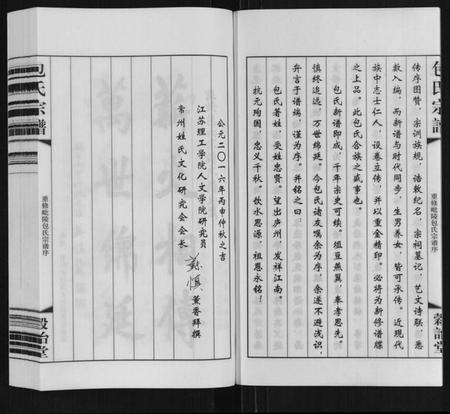 包氏宗谱
重修毗陵包氏宗谱序
传序图赞，宗训族规，诰敕纪名，宗祠墓记，艺文诗联，悉
数入编，而新谱与时代同步，生男养女，皆可承传。近现代
族中志士仁人，设卷立传，并以重金精印。必将为新修谱牒
之上品。此包氏合族之盛事也。
包氏新谱印成，千年宗史可续。俎豆燕翼，奉孝思先。
慎终追远，万世绵延。今包氏诸友嘱余为序，余遂不避浅识，
弁言于谱端，谨为序。并铭之曰：
包氏著姓，受姓忠贤。望出庐州，发祥江南。
抗元殉国，忠义千秋。饮水思源，祖恩永铭！
公元二〇一六年丙申仲秋之吉
江苏理工学院人文学院研究员
常州姓氏文化研究会会长
薰香拜撰
包氏宗谱
重修毗陵包氏宗谱序